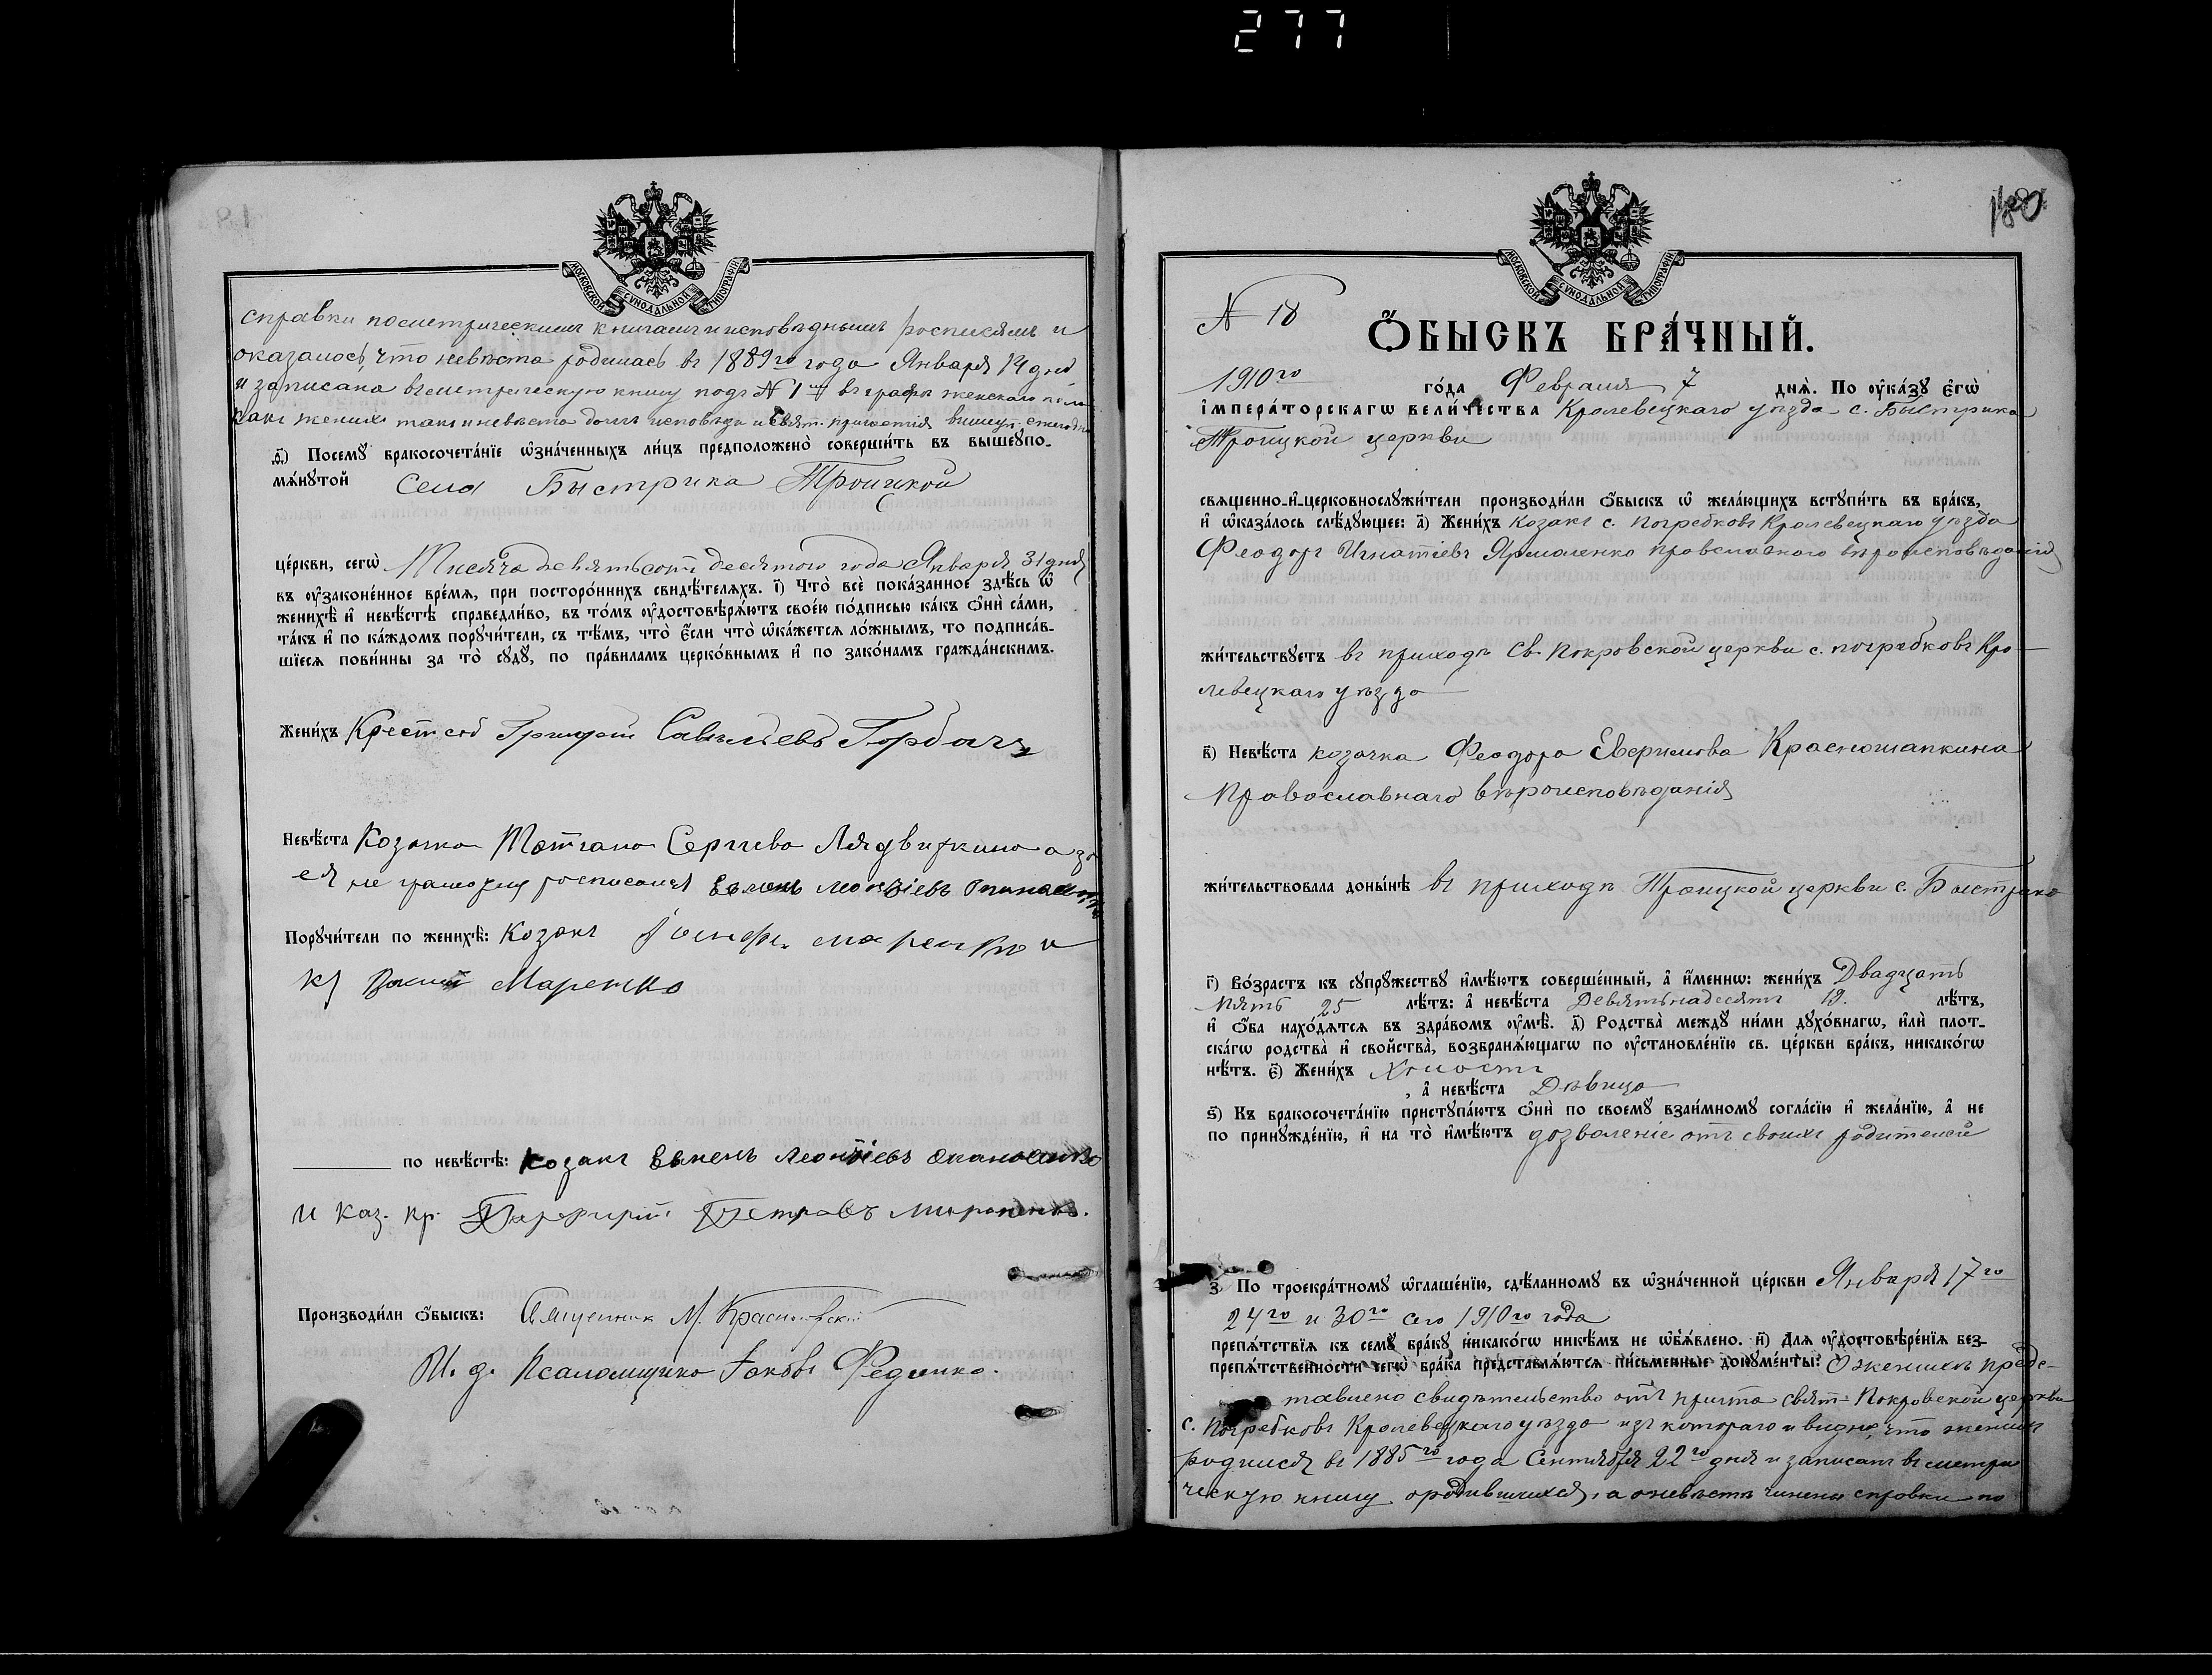 277
МОСКОВСКОЙ СУНОДАЛЬНОЙ ТИПОГРАФІИ
справки по метрическимъ книгамъ и исповѣднымъ росписямъ и
оказалось, что невѣста родилась въ 1889го года Января 14 дня
и записана въ метрическую книгу подъ № 1 въ графѣ женскаго пола
какъ женихъ такъ и невѣста долгъ исповѣди и Свят. причастія
д҃) Посемꙋ бракосочета́нїе ѡ҆зна́ченныхъ ли́цъ предположено̀ соверши́ть въ вышеꙋпо-
мѧ́нꙋтой села Быстрика Троицкой
це́ркви, сегѡ̀ Тысяча девятьсотъ десятого года Января 31 дня
въ ᲂу҆зако́ненное вре́мѧ, при посторо́ннихъ свидѣ́телѧхъ. і҃) Что̀ всѐ пока́занное здѣ́сь ѡ҆
женихѣ̀ и҆ невѣ́стѣ справедли́во, въ то́мъ ᲂу҆достовѣрѧ́ютъ свое́ю по́дписью ка́къ ѻ҆нѝ са́ми,
та́къ и҆ по ка́ждомъ порꙋчи́тели, съ тѣ́мъ, что̀ є҆́сли что̀ ѡ҆ка́жетсѧ ло́жнымъ, то подписа́в-
шїесѧ пови́нны за то̀ сꙋдꙋ̀, по пра́виламъ церко́внымъ и҆ по зако́намъ гражда́нскимъ.
Жени́хъ Григорій Савельевъ Горбачъ
Невѣ́ста Козачка Татіана Сергіева Лядвишкина а за
ея не грамотну росписался
Порꙋчи́тели по женихѣ̀: Козакъ Іосифъ Маренко и
к) Маренко
по невѣ́стѣ: Козакъ Евменъ Леонтіевъ
и каз. кр. Порфирій Петровъ Мироненко.
Производи́ли ѻ҆́быскъ: Священникъ М. Красногорскій
И. д. Псаломщика Іаковъ Феденко.
180
МОСКОВСКОЙ СУНОДАЛЬНОЙ ТИПОГРАФІИ
№ 18
Ѻ҆́БЫСКЪ БРА́ЧНЫЙ.
1910го го́да Февраля 7 днѧ̀. По ᲂу҆ка́зꙋ є҆гѡ̀
і҆мпера́торскагѡ вели́чества Кролевецкаго уѣзда с. Быстрика
Троицкой церкви
свѧщенно-и҆-церковнослꙋжи́тели производи́ли ѻ҆́быскъ ѡ҆ жела́ющихъ встꙋпи́ть въ бра́къ,
и҆ ѡ҆каза́лось слѣ́дꙋющее: а҃) Жени́хъ Козакъ с. Погребковъ Кролевецкаго уѣзда
Феодоръ Игнатіевъ Ярмоленко православнаго вѣроисповѣданія
жи́тельствꙋетъ въ приходѣ Св. Покровской церкви с. Погребковъ Кро-
левецкаго уѣзда
в҃) Невѣ́ста козачка Феодора Красношапкина
православнаго вѣроисповѣданія
жи́тельствовала доны́нѣ въ приходѣ Троицкой церкви с. Быстрика
г҃) Во́зрастъ къ сꙋпрꙋ́жествꙋ и҆мѣ́ютъ соверше́нный, а҆ и҆́меннѡ: жени́хъ Двадцать
пять 25 лѣ́тъ: а҆ невѣ́ста Девятьнадесять 19. лѣ́тъ,
и҆ ѻ҆́ба нахо́дѧтсѧ въ здра́вомъ ᲂу҆мѣ̀. д҃) Родства̀ междꙋ̀ ни́ми дꙋхо́внагѡ, и҆лѝ плот-
ска́гѡ родства̀ и҆ сво́йства̀, возбранѧ́ющагѡ по ᲂу҆становле́нїю св. це́ркви бра́къ, никако́гѡ
нѣ́тъ. є҃) Жени́хъ Холостъ
, а҆ невѣ́ста Дѣвица
ѕ҃) Къ бракосочета́нїю пристꙋпа́ютъ ѻ҆нѝ по своемꙋ̀ взаи́мномꙋ согла́сїю и҆ жела́нїю, а҆ не
по принꙋжде́нїю, и҆ на то̀ и҆мѣ́ютъ дозволеніе отъ своихъ родителей
з҃ По троекра́тномꙋ ѡ҆глаше́нїю, сдѣ́ланномꙋ въ ѡ҆зна́ченной це́ркви Января 17го
24го и 30го сего 1910го года
препѧ́тствїѧ къ семꙋ̀ бра́кꙋ никако́гѡ никѣ́мъ не ѡ҆б̾ѧ́влено. и҃) Для ᲂу҆достовѣре́нїѧ без-
препѧ́тственности сегѡ̀ бра́ка представлѧ́ютсѧ пи́сьменные докꙋме́нты: О женихѣ предс-
тавлено свидѣтельство отъ причта свят. Покровской церкви
с. Погребковъ Кролевецкаго уѣзда изъ котораго и видно, что женихъ
родился въ 1885го года Сентября 22го дня и записанъ въ метри
ческую книгу о родившихся, а о невѣстѣ чинены справки по